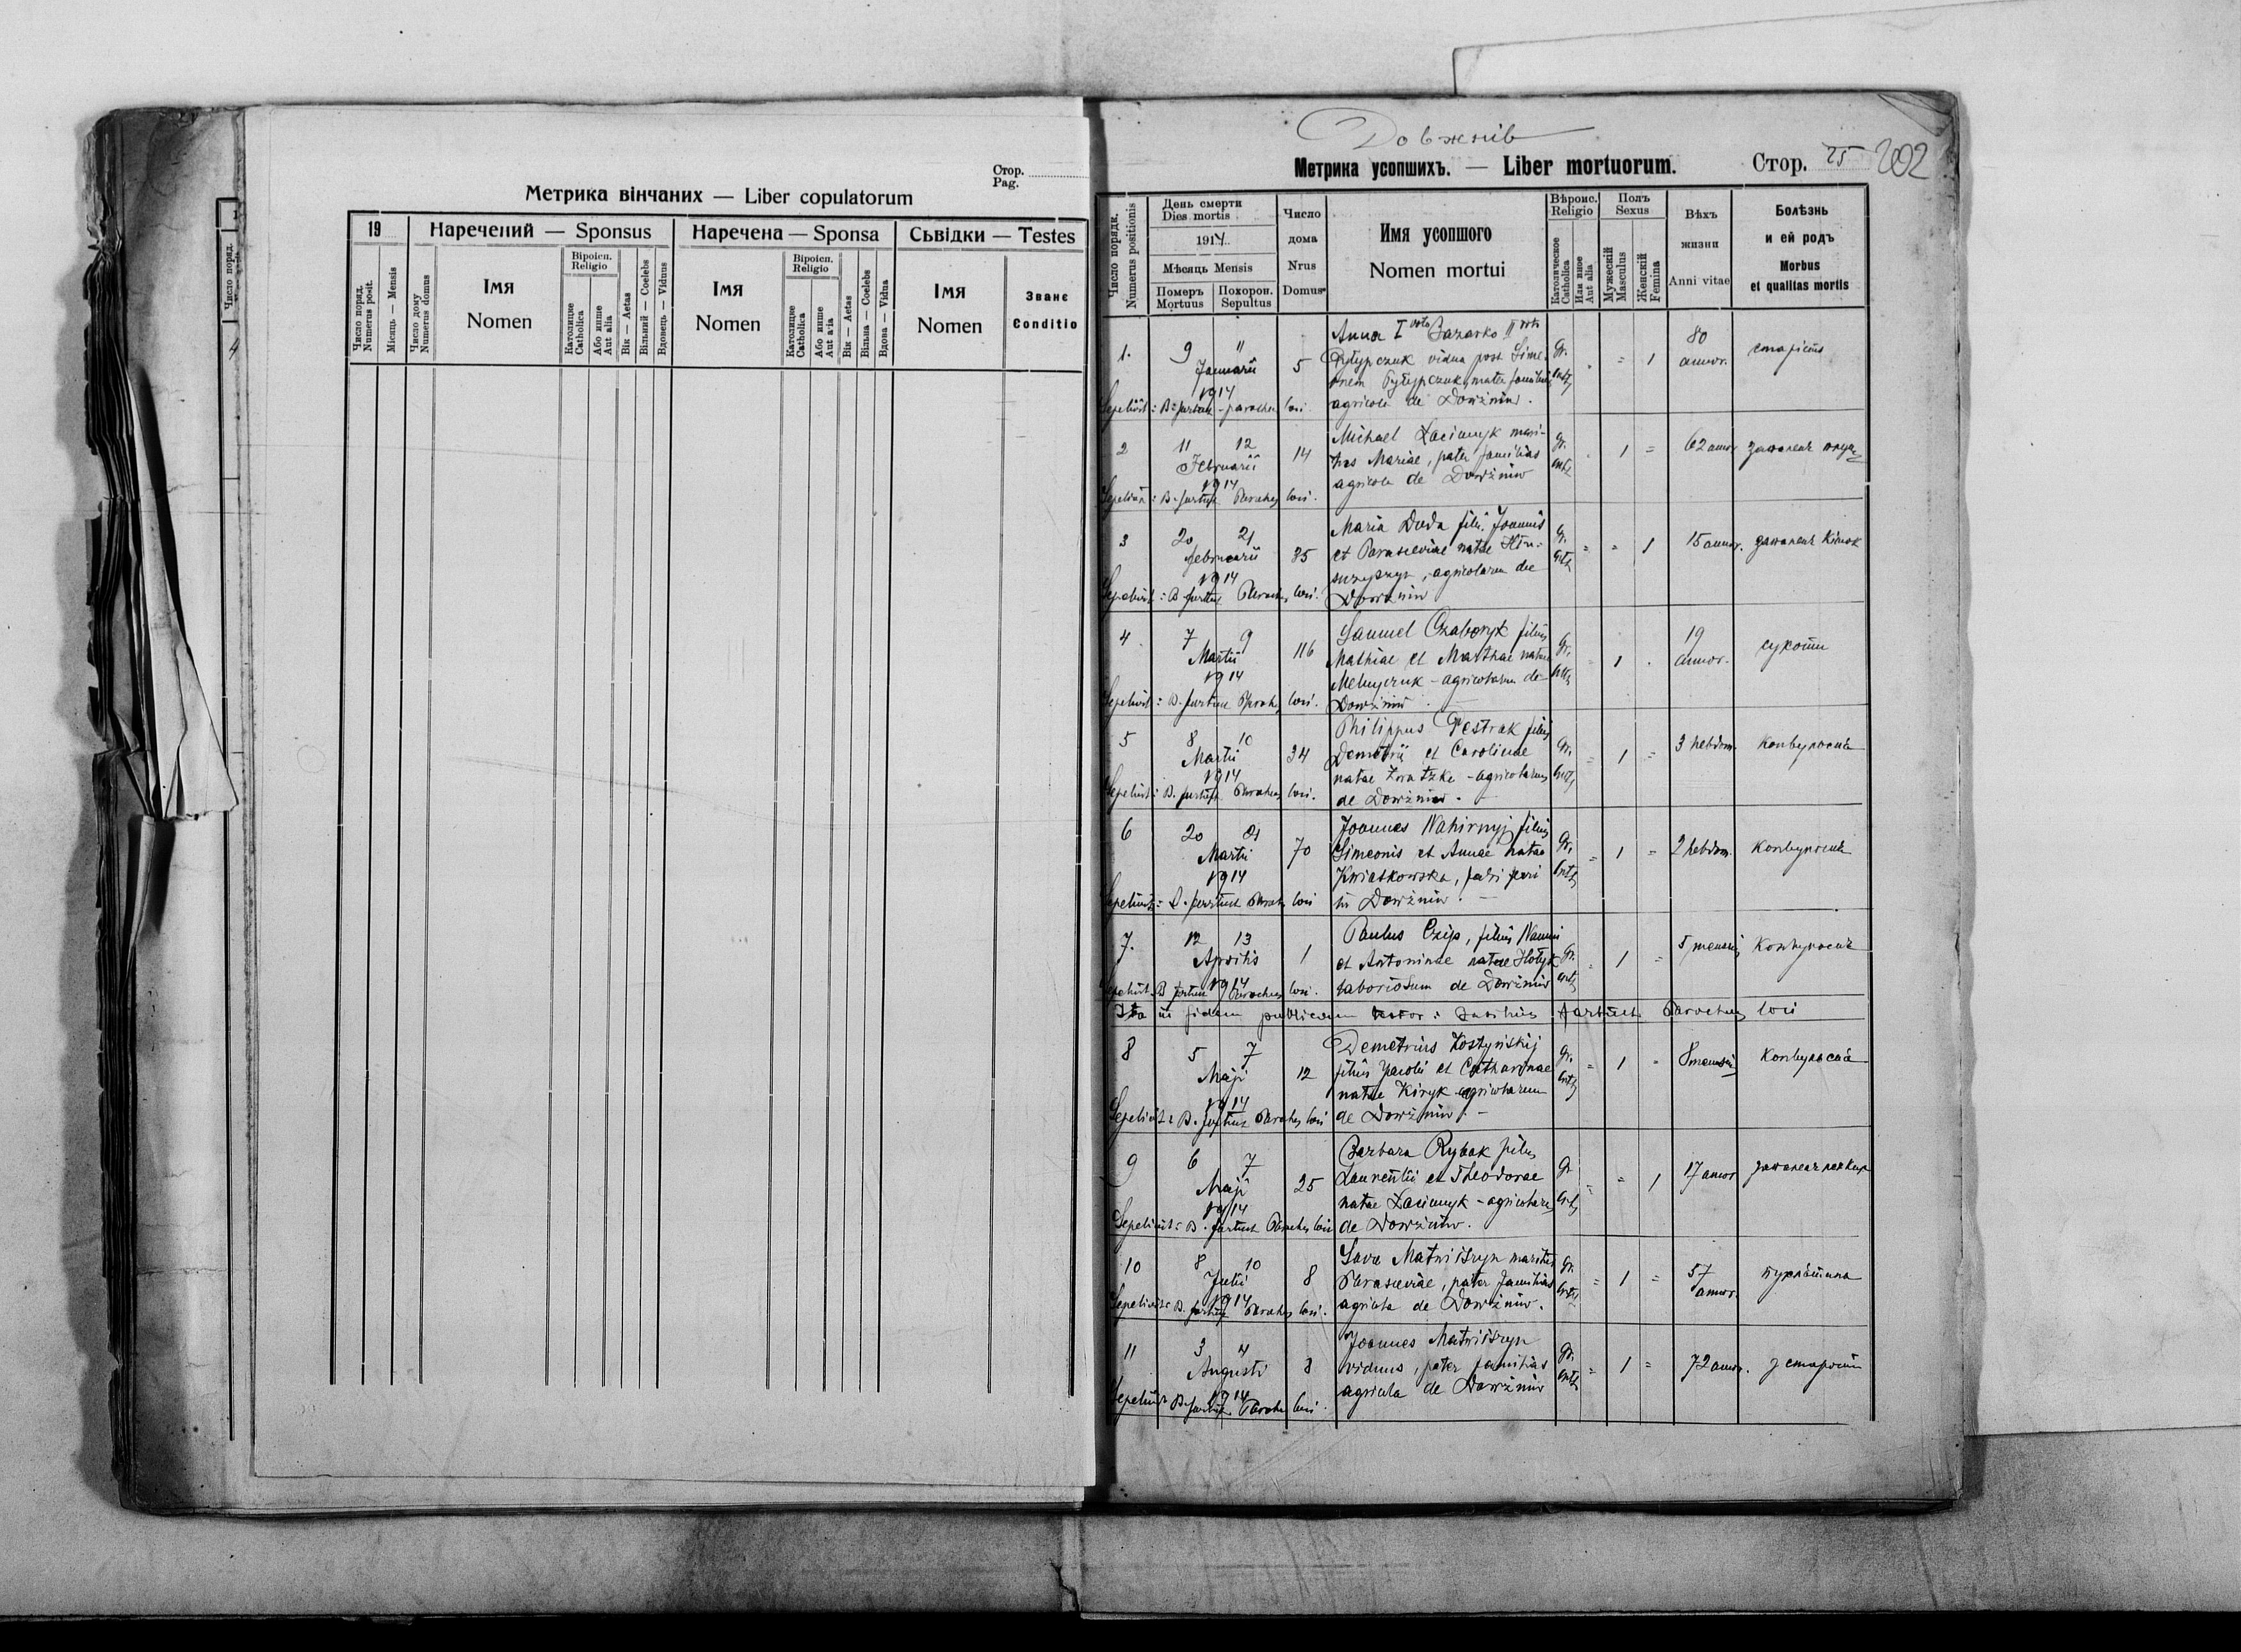 Стор.
Pag.
Метрика вінчаних — Liber copulatorum
19
Наречений — Sponsus
Наречена — Sponsa
Сьвідки — Testes
Число поряд.
Numerus posit.
Місяць — Mensis
Число дому
Numerus domus
Імя
Nomen
Віроісп.
Religio
Католицке
Catholica
Або инше
Aut alia
Вік — Aetas
Вільний — Coelebs
Вдовець — Viduus
Імя
Nomen
Віроісп.
Religio
Католицке
Catholica
Або инше
Aut alia
Вік — Aetas
Вільна — Coelebs
Вдова — Vidua
Імя
Nomen
Званє
Conditio
Число поряд.
4
Довжнів
Метрика усопшихъ. — Liber mortuorum.
Стор. 25
202
Число порядк.
Numerus positionis
День смерти
Dies mortis
1914
Мѣсяць Mensis
Померъ
Mortuus
Похорон.
Sepultus
Число
дома
Nrus
Domus
Имя усопшого
Nomen mortui
Вѣроис.
Religio
Католическое
Catholica
Или иное
Aut alia
Полъ
Sexus
Мужескій
Masculus
Женскій
Femina
Вѣкъ
жизни
Anni vitae
Болѣзнь
и ей родъ
Morbus
et qualitas mortis
1. 9 11 Januarii 1914 5
Anna I voto Bazarko II voto
vidua post Sime-
onem mater familias
agricola de Dowżniw.
Gr. 1 80 annor.
Sepelivit: parochus loci
2 11 12 Februarii 1914 14
Michael Laciunyk mari-
tus Mariae, pater familias
agricola de Dowżniw
Gr. 1 = 62 annor.
Sepelivit: B. Parochus loci.
3 20 21 Februarii 1914 35
Maria Duda filia Joannis
et Parasceviae natae
agricolarum de
Dowżniw
Gr. = = 1 15 annor.
Sepelivit: B. Parochus loci.
4 7 9 Martii 1914 116
Samuel Czaboryk filius
Mathiae et Marthae natae
Melnyczuk - agricolarum de
Dowżniw
Gr. 1 19 annor. сухоти
Sepelivit: B. Parochus loci.
5 8 10 Martii 1914 34
Philippus Pestrak filius
Demetrii et Carolinae
natae - agricolarum
de Dowżniw. —
Gr. = 1 = 3 hebdom. конвульсиі
Sepelivit: B. Parochus loci.
6 20 21 Martii 1914 70
Joannes Nahirnyj filius
Simeonis et Annae natae
Kwiatkowska,
in Dowżniw. —
Gr. = 1 = 2 hebdom. конвульсиі
Sepelivit: B. Parochus loci
7. 12 13 Aprilis 1914 1
Paulus Czip, filius Naumi
et Antoninae natae Hołyk
de Dowżniw
Gr. 1 5 mensis конвульсиі
Sepelivit: B. Parochus loci.
Ita in fidem publicam testor: Basilius Parochus loci
8 5 7 Maji 1914 12
Demetrius Kostyńskij
filius Jacobi et Catharinae
natae Kiryk agricolarum
de Dowżniw. —
Gr. = 1 = 8 mensis конвульсиі
Sepelivit: B. Parochus loci
9 6 7 Maji 1914 25
Barbara Rybak filia
Laurentii et Theodorae
natae Laciunyk - agricolarum
de Dowżniw.
Gr. = = 1 17 annor
Sepelivit: B. Parochus loci
10 8 10 Julii 1914 8
Sava Matwiiszyn maritus
Parasceviae, pater familias
agricola de Dowżniw.
Gr. = 1 = 57 annor. пухлина
Sepelivit: B. Parochus loci.
11 3 4 Augusti 1914 8
Joannes Matwiiszyn
viduus, pater familias
agricola de Dowżniw
Gr. = 1 = 72 annor. з старости
Sepelivit B. Parochus loci.